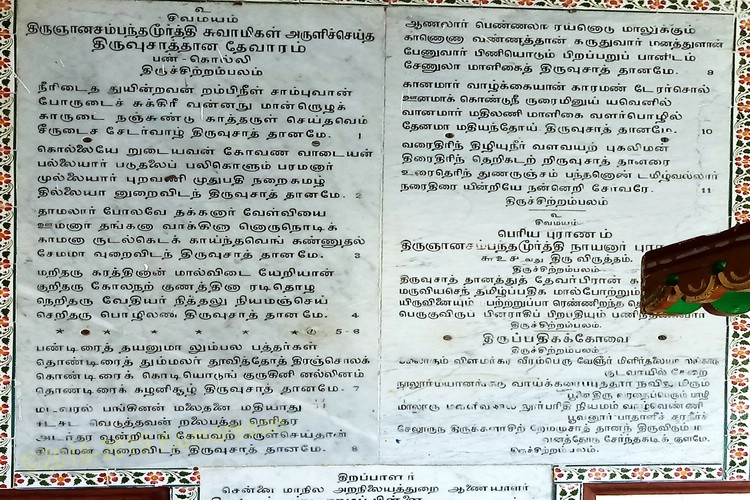 உ
சிவமயம்
திருஞானசம்பந்தமூர்த்தி சுவாமிகள் அருளிச்செய்த
திருவுசாத்தான தேவாரம்
பண் - கொல்லி
திருச்சிற்றம்பலம்
நீரிடைத் துயின்றவன் றம்பிநீள் சாம்புவான்
போருடைச் சுக்கிரீ வன்னநு மான்றொழக்
காருடை நஞ்சுண்டு காத்தருள் செய்தவெம்
சீருடைச் சேடர்வாழ் திருவுசாத் தானமே. 1
கொல்லையே றுடையவன் கோவண வாடையன்
பல்லையார் படுதலைப் பலிகொளும் பரமனார்
முல்லையார் புறவணி முதுபதி நறைகமழ்
தில்லையா னுறைவிடந் திருவுசாத் தானமே. 2
தாமலார் போலவே தக்கனார் வேள்வியை
ஊமனார் தங்கனா வாக்கினா னொருநொடிக்
காமனா ருடல்கெடக் காய்ந்தவெங் கண்ணுதல்
சேமமா வுறைவிடந் திருவுசாத் தானமே. 3
மறிதரு கரத்தினான் மால்விடை யேறியான்
குறிதரு கோலநற் குணத்தினா ரடிதொழ
நெறிதரு வேதியர் நித்தலு நியமஞ்செய்
செறிதரு பொழிலணி திருவுசாத் தானமே. 4
* * * * * * 5-6
பண்டிரைத் தயனுமா லும்பல பத்தர்கள்
தொண்டிரைத் தும்மலர் தூவித்தோத் திரஞ்சொலக்
கொண்டிரைக் கொடியொடுங் குருகினி னல்லினம்
தெண்டிரைக் கழனிசூழ் திருவுசாத் தானமே. 7
மடவரல் பங்கினன் மலைதனை மதியாது
சடசட வெடுத்தவன் றலைபத்து நெரிதர
அடர்தர வூன்றியங் கேயவற் கருள்செய்தான்
திடமென வுறைவிடந் திருவுசாத் தானமே. 8
ஆணலார் பெண்ணலா ரயனொடு மாலுக்கும்
காணொணா வண்ணத்தான் கருதுவார் மனத்துளான்
பேணுவார் பிணியொடும் பிறப்பறுப் பானிடம்
சேணுலா மாளிகைத் திருவுசாத் தானமே. 9
கானமார் வாழ்க்கையான் காரமண் டேரர்சொல்
ஊனமாக் கொண்டுநீ ருரைமினுய் யவெனில்
வானமார் மதிலணி மாளிகை வளர்பொழில்
தேனமா மதியந்தோய் திருவுசாத் தானமே. 10
வரைதிரிந் திழியுநீர் வளவயற் புகலிமன்
திரைதிரிந் தெறிகடற் றிருவுசாத் தானரை
உரைதெரிந் துணருஞ்சம் பந்தனொண் டமிழ்வல்லார்
நரைதிரை யின்றியே நன்னெறி சேர்வரே. 11
திருச்சிற்றம்பலம்
உ
சிவமயம்
பெரிய புராணம்
திருஞானசம்பந்தமூர்த்தி நாயனார்
திரு விருத்தம்.
திருச்சிற்றம்பலம்
திருவுசாத் தானத்துத் தேவர்பிரான்
மருவியசெந் தமிழ்ப்பதிக மால்போற்றும்
யிருவினையும் பற்றறுப்பா ரெண்ணிறந்த
பெருகுவிருப் பினராகிப் பிறபதியும் பணிந்தணைவார்
திருச்சிற்றம்பலம்.
திருப்பதிகக்கோவை
திருச்சிற்றம்பலம்
திருச்சிற்றம்பலம்.
திறப்பாளர்
சென்னை மாநில அறநிலையத்துறை ஆணையாளர்